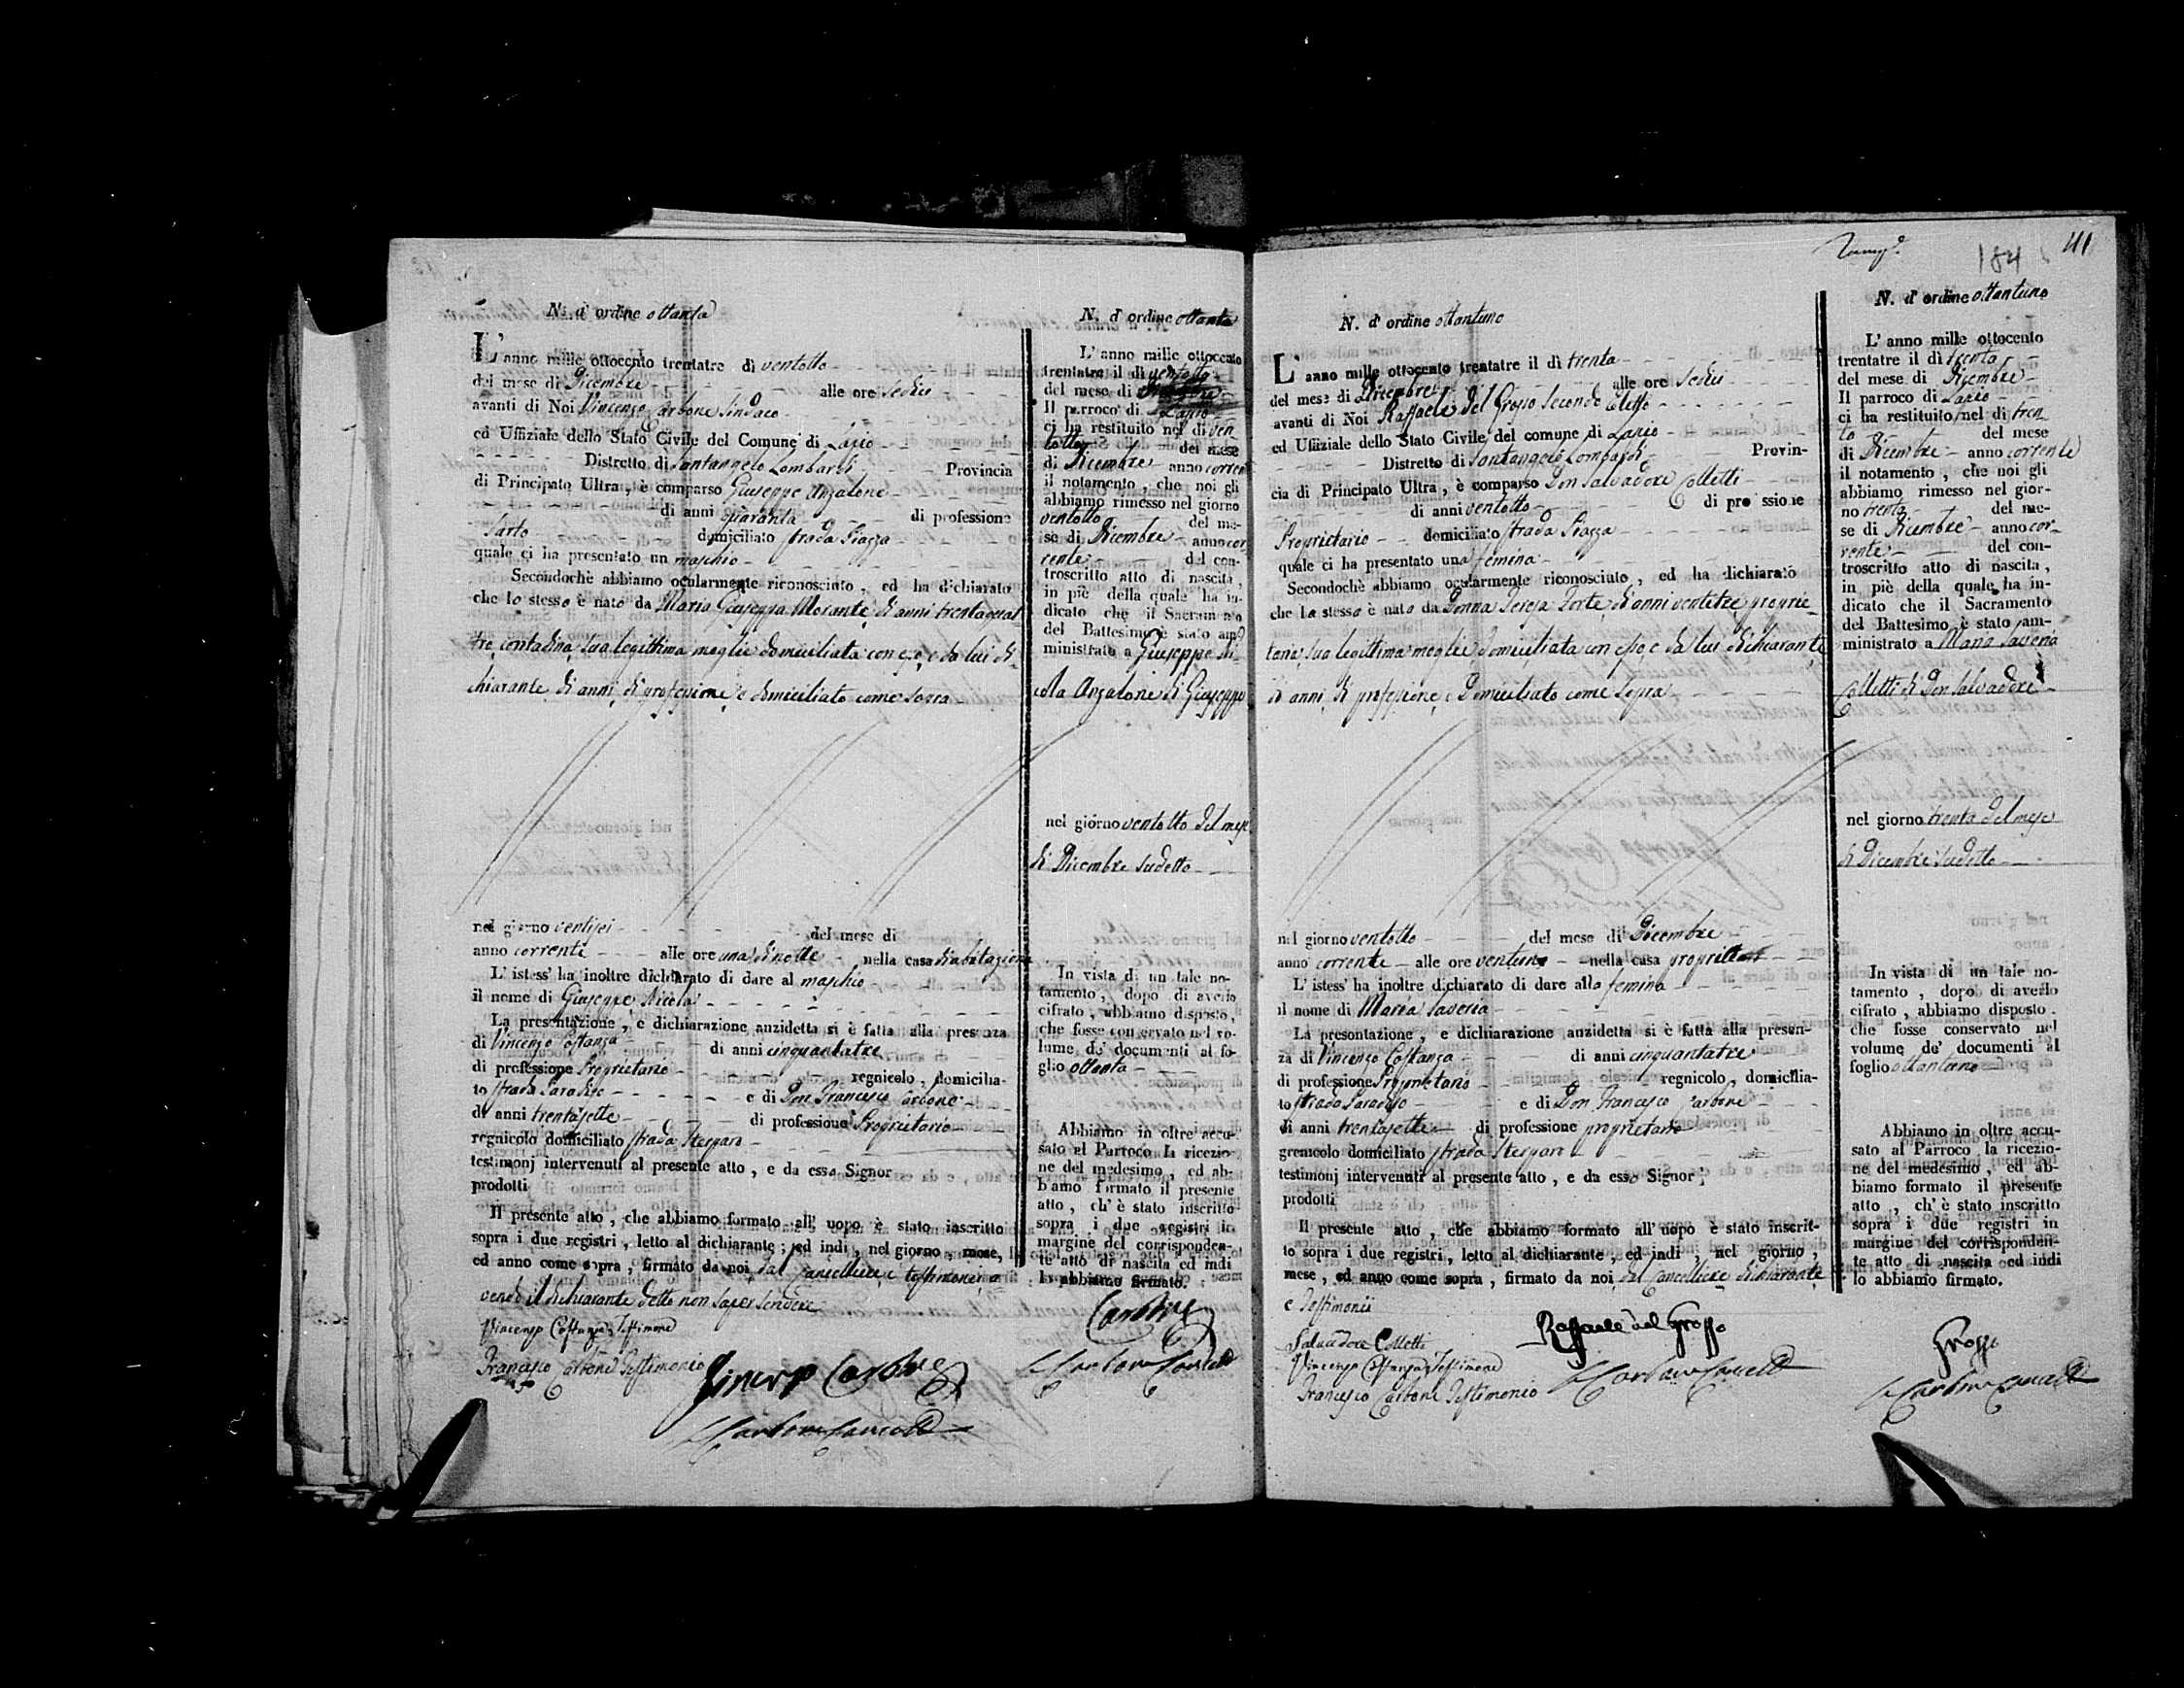 N. d' ordine ottanta
L' anno mille ottocento trentatre di ventotto
del mese di Dicembre alle ore sedici
avanti di Noi Vincenzo Carbone Sindaco
ed Uffiziale dello Stato Civile del Comune di Lapio
Distretto di Santangelo Lombardi Provincia
di Principato Ultra, è comparso Giuseppe Anzalone
di anni quaranta di professione
Sarto domiciliato strada Piazza
quale ci ha presentato un maschio
Secondochè abbiamo ocularmente riconosciuto, ed ha dichiarato
che lo stesso è nato da Maria Giuseppa Morante, di anni trentaquat
tro, contadina, sua legittima moglie domiciliata con esso, e da lui di-
chiarante di anni, di professione, e domiciliato come sopra
nel giorno ventisei del mese di
anno corrente alle ore una di notte nella casa di abitazione
L' istess' ha inoltre dichiarato di dare al maschio
il nome di Giuseppe Nicola
La presentazione, e dichiarazione anzidetta si è fatta alla presenza
di Vincenzo Costanza di anni cinquantatre
di professione Proprietario regnicolo, domicilia-
to strada Paradiso e di Don Francesco Carbone
di anni trentasette di professione Proprietario
regnicolo domiciliato strada Sterparo
testimonj intervenuti al presente atto, e da esso Signor
prodotti
Il presente atto, che abbiamo formato all' uopo è stato inscritto
sopra i due registri, letto al dichiarante; ed indi, nel giorno, mese,
ed anno come sopra, firmato da noi, dal Cancelliere, e testimoni a
vendo il dichiarante detto non saper scrivere
Vincenzo Costanza Testimone
Francesco Carbone Testimonio
Vincenzo Carbone
Carbone Cancell
N. d' ordine ottanta
L' anno mille ottocento
trentatre il di ventotto
del mese di
Il parroco di Lapio
ci ha restituito nel di ven
totto del mese
di Dicembre anno corren
il notamento, che noi gli
abbiamo rimesso nel giorno
ventotto del me-
se di Dicembre anno cor
rente del con-
troscritto atto di nascita,
in piè della quale ha in-
dicato che il Sacramento
del Battesimo è stato am
ministrato a Giuseppe Ni-
cola Anzalone di Giuseppe
nel giorno ventotto del mese
di Dicembre sudetto
In vista di un tale no-
tamento, dopo di averlo
cifrato, abbiamo disposto,
che fosse conservato nel vo-
lume de' documenti al fo-
glio ottanta
Abbiamo in oltre accu-
sato al Parroco la ricezio-
ne del medesimo, ed ab-
biamo formato il presente
atto, ch' è stato inscritto
sopra i due registri in
margine del corrisponden-
te atto di nascita ed indi
lo abbiamo firmato.
Carbone
Carbone Cancell
184
N. d' ordine ottantuno
L' anno mille ottocento trentatre il dì trenta
del mese di Dicembre alle ore sedici
avanti di Noi Raffaele del Grosso Secondo Eletto
ed Uffiziale dello Stato Civile del comune di Lapio
Distretto di Santangelo Lombardi Provin-
cia di Principato Ultra, è comparso Don Salvadore Colletti
di anni ventotto di professione
Proprietario domiciliato strada Piazza
quale ci ha presentato una femina
Secondochè abbiamo ocularmente riconosciuto, ed ha dichiarato
che la stesso è nato da Donna Teresa Forte, di anni ventitre proprie
taria, sua legittima moglie domiciliata con esso, e da lui dichiarante
di anni, di professione, e domiciliato come sopra
nel giorno ventotto del mese di Dicembre
anno corrente alle ore ventuno nella casa propria
L' istess' ha inoltre dichiarato di dare alla femina
il nome di Maria Saveria
La presentazione, e dichiarazione anzidetta si è fatta alla presen-
za di Vincenzo Costanza di anni cinquantatre
di professione Proprietario regnicolo, domicilia-
to strada Paradiso e di Don Francesco Carbone
di anni trentasette di professione proprietario
grenicolo domiciliato strada Sterparo
testimonj intervenuti al presente atto, e da esso Signor
prodotti
Il presente atto, che abbiamo formato all' uopo è stato inscrit-
to sopra i due registri, letto al dichiarante, ed indi, nel giorno,
mese, ed anno come sopra, firmato da noi, dal Cancelliere dichiarante
e Testimonii
Salvadore Colletti
Vincenzo Costanza Testimone
Francesco Carbone Testimonio
Raffaele del Grosso
Carbone Cancell
N. d' ordine ottantuno
L' anno mille ottocento
trentatre il dì trenta
del mese di Dicembre
Il parroco di Lapio
ci ha restituito nel di tren
ta del mese
di Dicembre anno corrente
il notamento, che noi gli
abbiamo rimesso nel gior-
no trenta del me-
se di Dicembre anno cor-
rente del con-
troscritto atto di nascita,
in piè della quale ha in-
dicato che il Sacramento
del Battesimo è stato am-
ministrato a Maria Saveria
Colletti di Don Salvadore
nel giorno trenta del mese
di Dicembre sudetto
In vista di un tale no-
tamento, dopo di averlo
cifrato, abbiamo disposto.
che fosse conservato nel
volume de' documenti al
foglio ottantuno
Abbiamo in oltre accu-
sato al Parroco la ricezio-
ne del medesimo, ed ab-
biamo formato il presente
atto, ch' è stato inscritto
sopra i due registri in
margine del corrisponden-
te atto di nascita ed indi
lo abbiamo firmato.
Grosso
Carbone Cancell